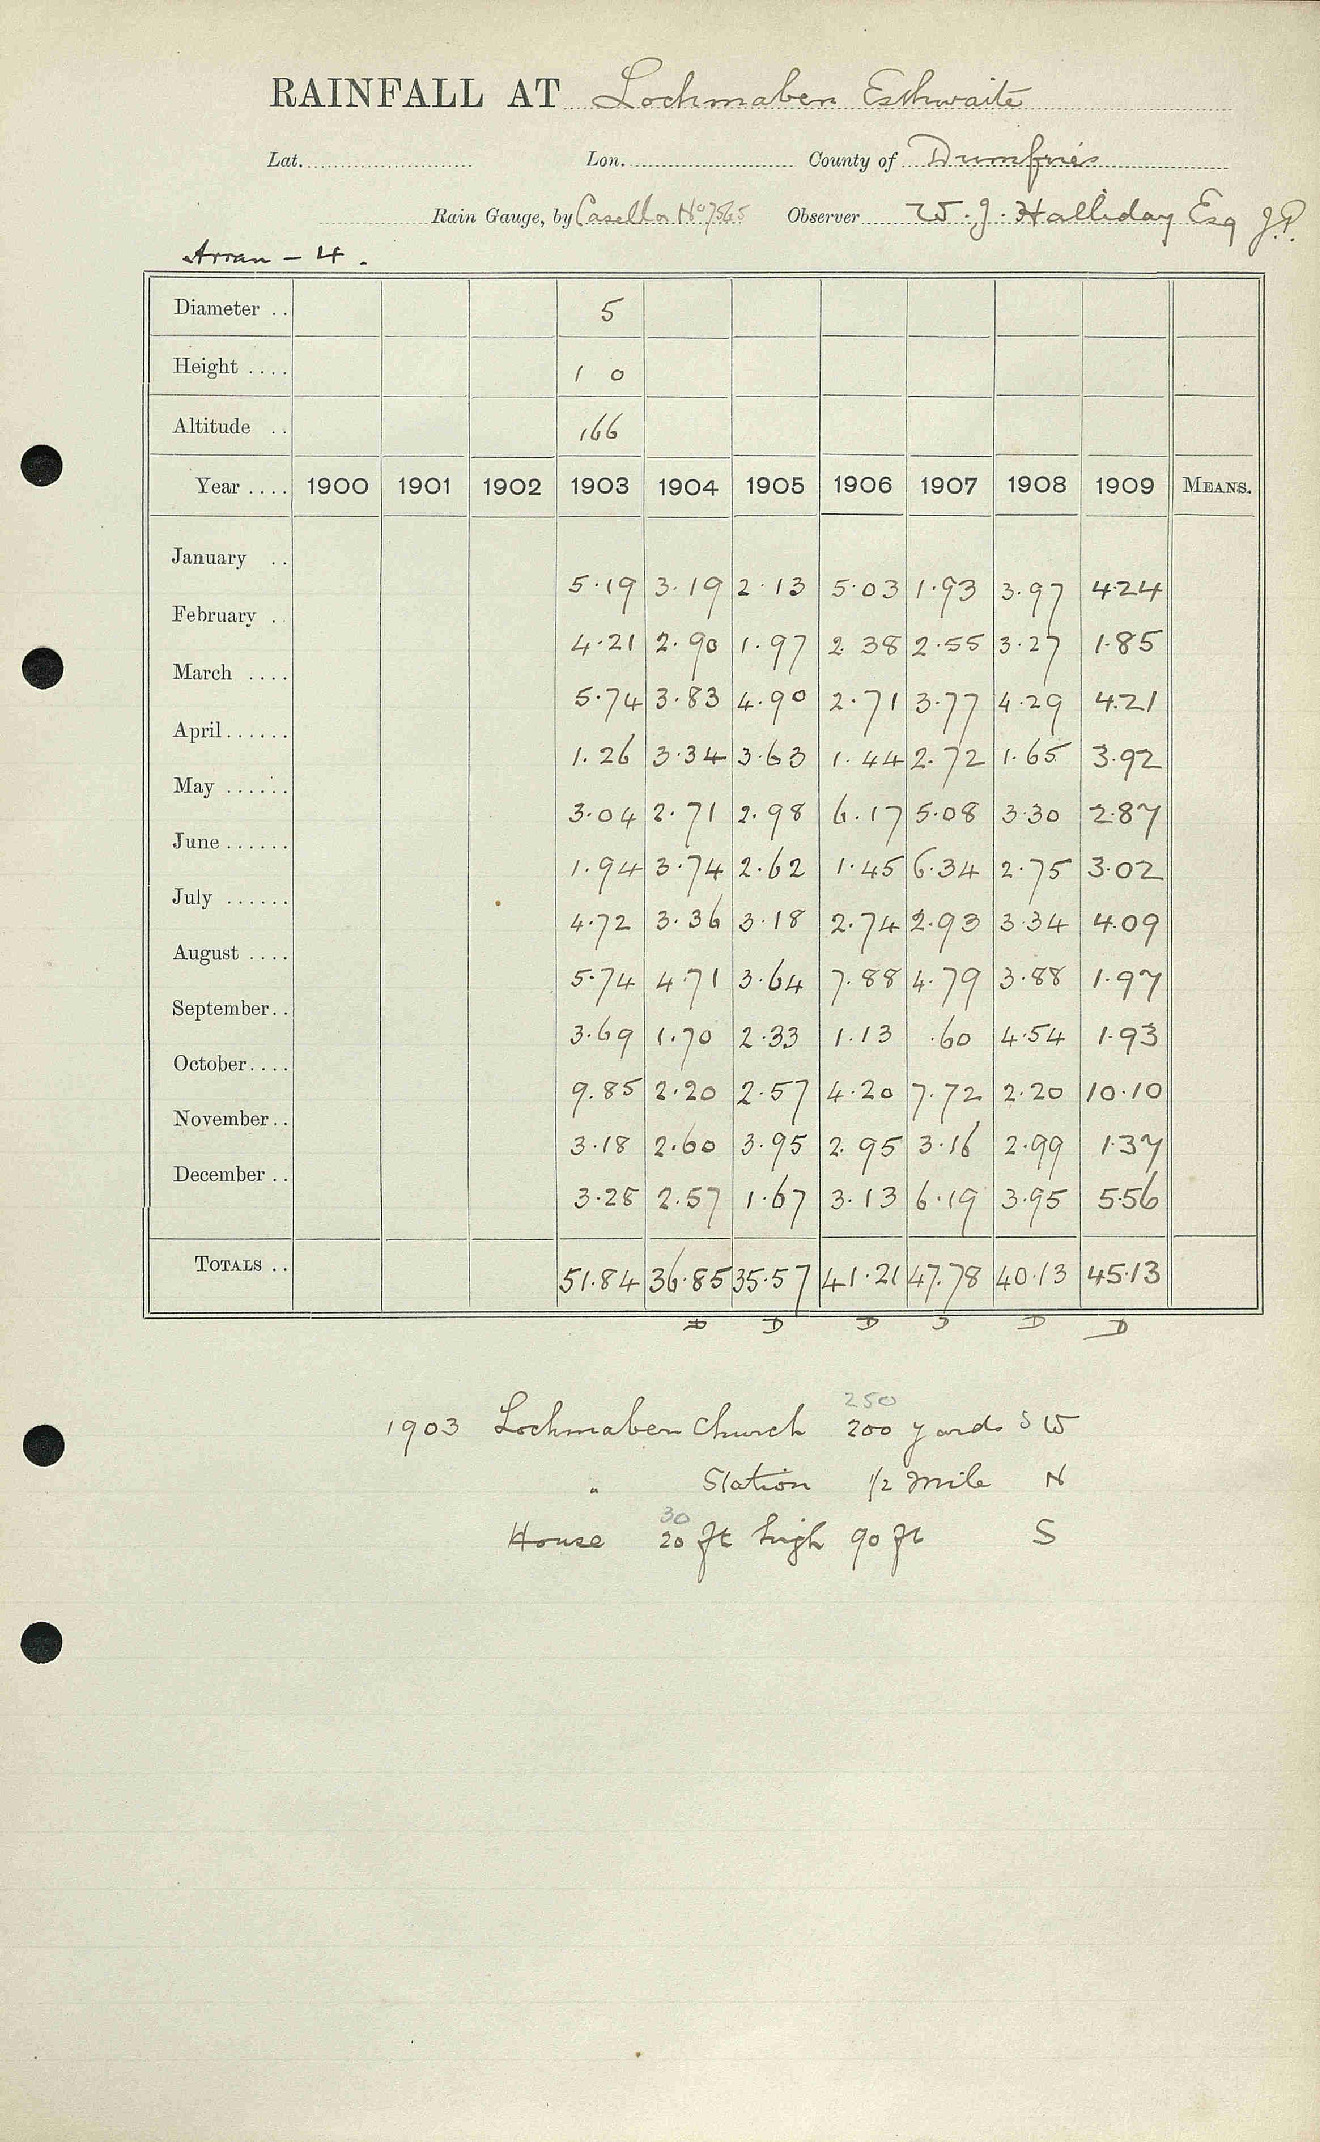 RAINFALL AT Lochmaben Esthwaite
Lat. Lon. County of Dumfries
Rain Gauge, by Casella No 7565 Observer W. J. Halliday Esq J.P.
Arran - 4.
Diameter .. 5
Height .... 1 0
Altitude .. 166
Year .... 1900 1901 1902 1903 1904 1905 1906 1907 1908 1909 MEANS.
January .. 5.19 3.19 2.13 5.03 1.93 3.97 4.24
February .. 4.21 2.90 1.97 2.38 2.55 3.27 1.85
March .... 5.74 3.83 4.90 2.71 3.77 4.29 4.21
April...... 1.26 3.34 3.63 1.44 2.72 1.65 3.92
May ...... 3.04 2.71 2.98 6.17 5.08 3.30 2.87
June ...... 1.94 3.74 2.62 1.45 6.34 2.75 3.02
July ...... 4.72 3.36 3.18 2.74 2.93 3.34 4.09
August .... 5.74 4.71 3.64 7.88 4.79 3.88 1.97
September.. 3.69 1.70 2.33 1.13 .60 4.54 1.93
October.... 9.85 2.20 2.57 4.20 7.72 2.20 10.10
November.. 3.18 2.60 3.95 2.95 3.16 2.99 1.37
December .. 3.28 2.57 1.67 3.13 6.19 3.95 5.56
TOTALS .. 51.84 36.85 35.57 41.21 47.78 40.13 45.13
D D D D D D
250
1903 Lochmaben Church 200 yards S W
" Station 1/2 mile N
30
House 20 ft high 90 ft S